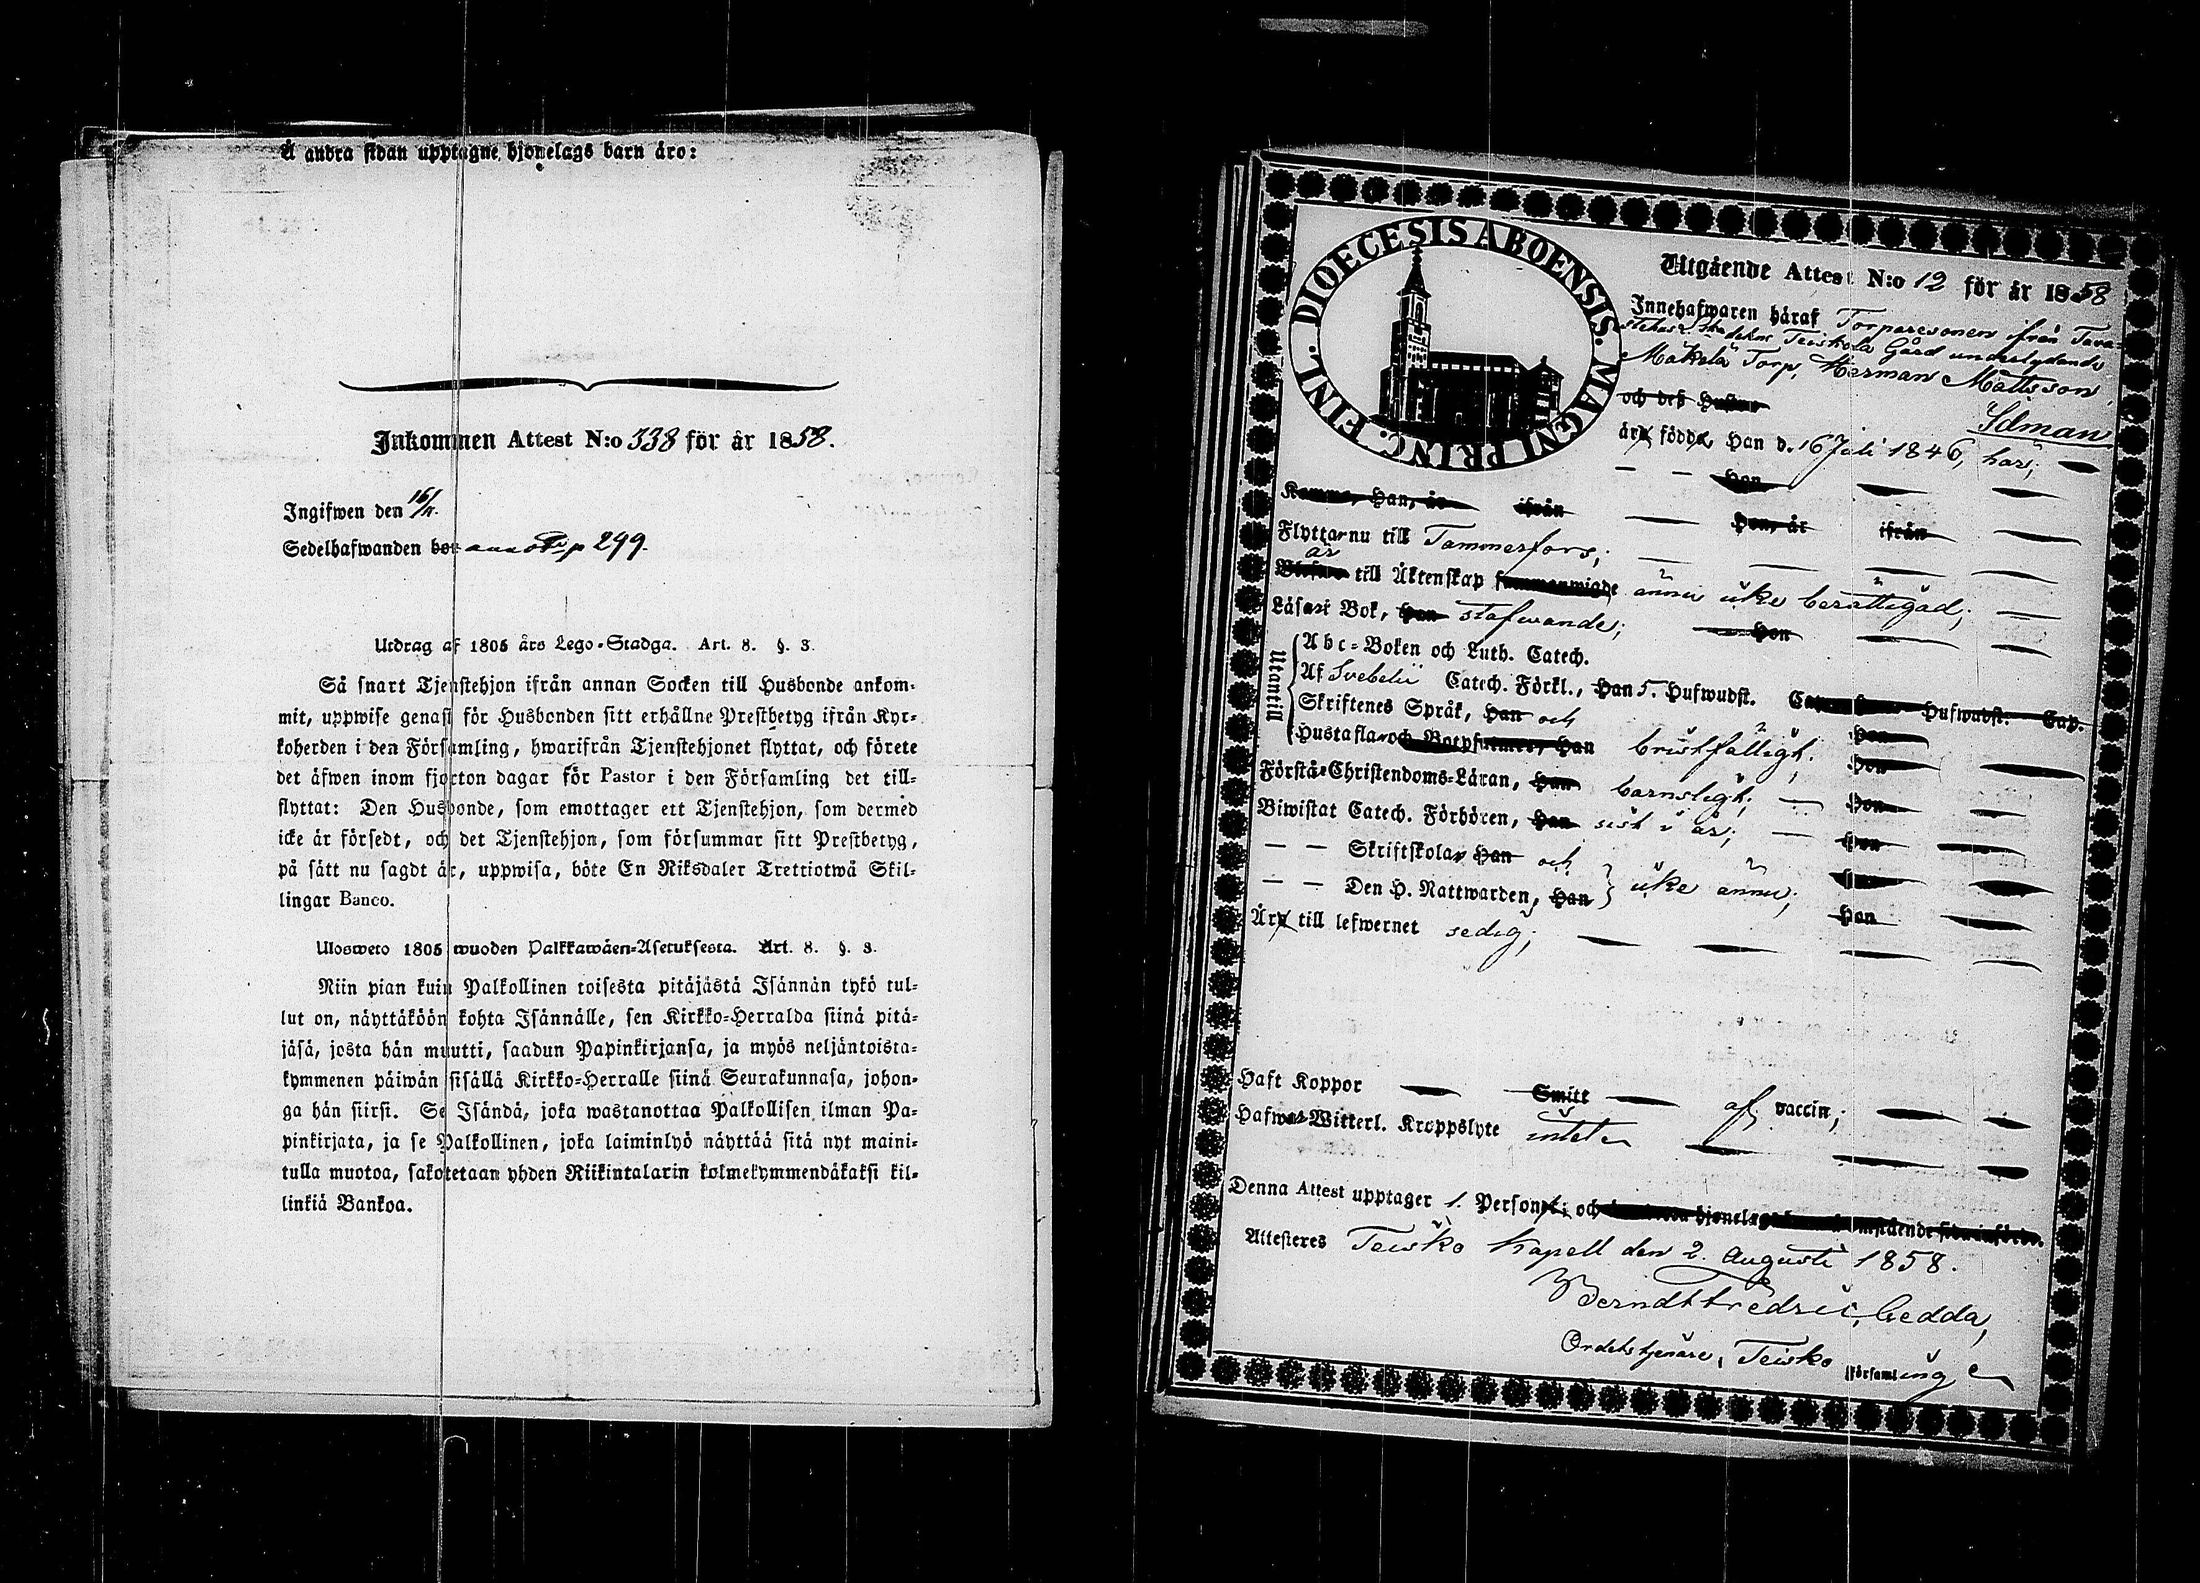 Å andra sidan upptagne hjonelags barn äro:
Inkommen Attest N:o 338 för år 1858.
Ingifwen den 16/11.
Sedelhafwanden bor p 299.
Utdrag af 1805 års Lego-Stadga. Art. 8. §. 3.
Så snart Tjenstehjon ifrån annan Socken till Husbonde ankom-
mit, uppwise genast för Husbonden sitt erhållne Prestbetyg ifrån Kyr-
koherden i den Församling, hwarifrån Tjenstehjonet flyttat, och förete
det äfwen inom fjorton dagar för Pastor i den Församling det till-
flyttat: Den Husbonde, som emottager ett Tjenstehjon, som dermed
icke är försedt, och det Tjenstehjon, som försummar sitt Prestbetyg,
på sätt nu sagdt är, uppwisa, böte En Riksdaler Trettiotwå Skil-
lingar Banco.
Ulosweto 1805 wuoden Palkkawäen-Asetuksesta. Art. 8. §. 3.
Niin pian kuin Palkollinen toisesta pitäjästä Isännän tykö tul-
lut on, näyttäköön kohta Isännälle, sen Kirkko-Herralda siinä pitä-
jäsä, josta hän muutti, saadun Papinkirjansa, ja myös neljäntoista-
kymmenen päiwän sisällä Kirkko-Herralle siinä Seurakunnasa, johon-
ga hän siirsi. Se Isändä, joka wastanottaa Palkollisen ilman Pa-
pinkirjata, ja se Palkollinen, joka laiminlyö näyttää sitä nyt maini-
tulla muotoa, sakotetaan yhden Riikintalarin kolmekymmendäkaksi kil-
linkiä Bankoa.
DIOECESIS ABOENSIS. MAGNI PRINC. FINL.
Utgående Attest N:o 12 för år 1858
Innehafwaren häraf Torparesonen ifrån Tava-
stehus Teiskola Gård underlydande
Mäkelä Torp, Herman Mattsson
och deß Hustru Idman
äro födde, Han d. 16 Juli 1846, här;
— — Hon
Komne, Han, år ifrån Hon, år ifrån
Flyttar nu till Tammerfors;
är
till Äktenskap sammanwigde ännu icke berättigad;
Läser i Bok, Han stafwande; Hon
Utantill
Abc-Boken och Luth. Catech.
Af Svebelii Catech. Förkl., Han 5. Hufwudst. Cap. Hufwudst. Cap.
Skriftenes Språk, Han och Hon
Hustaflan och Botpsalmer, Han bristfälligt; Hon
Förstå Christendoms-Läran, Han barnsligt; Hon
Biwistat Catech. Förhören, Han sist i år; Hon
— — Skriftskolan Han och
— — Den H. Nattwarden, Han icke ännu; Hon
Äro till lefwernet sedig;
Haft Koppor Smitt af vaccin;
Hafwa Witterl. Kroppslyte intet
Denna Attest upptager 1. Person; och hjonelags omstående sida införde.
Attesteres Teisko Kapell den 2. Augusti 1858.
Berndt Fredric Gedda,
Ordetstjenare, Teisko församling